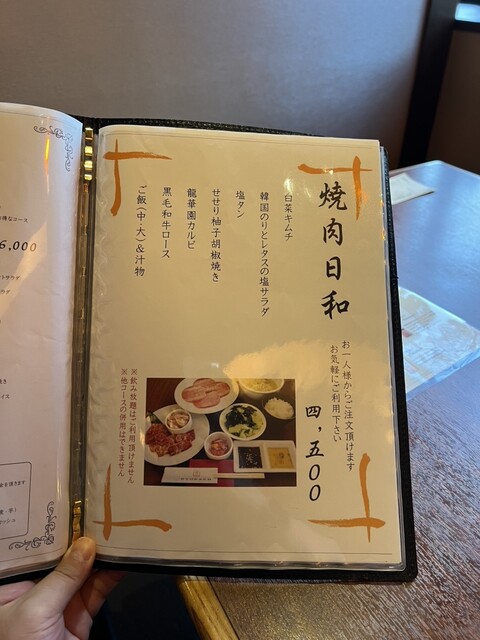 焼肉日和
お一人様からご注文頂けます
お気軽にご利用下さい
四,五00
白菜キムチ
韓国のりとレタスの塩サラダ
塩タン
せせり柚子胡椒焼き
龍華園カルビ
黒毛和牛ロース
ご飯(中・大)&汁物
※飲み放題はご利用頂けません
※他コースの併用はできません
得なコース
6,000
サラダ